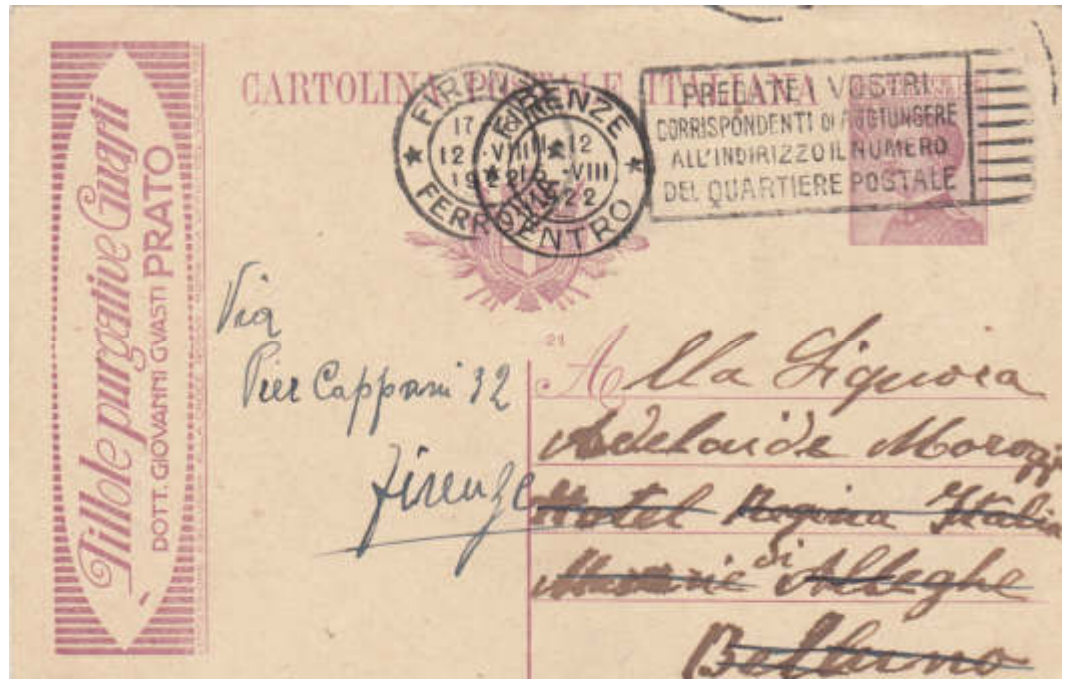 Pillole purgative Guasti
DOTT. GIOVANNI GVASTI PRATO
CARTOLINA POSTALE ITALIANA
FIRENZE
17
12 · VIII
1922
FERR
FIRENZE
12
15 · VIII
22
CENTRO
PREGATE I VOSTRI
CORRISPONDENTI DI AGGIUNGERE
ALL'INDIRIZZO IL NUMERO
DEL QUARTIERE POSTALE
Via
Pier Capponi 32
Firenze
21
Alla Signora
Adelaide
Hotel Regina Italia
di Alleghe
Belluno